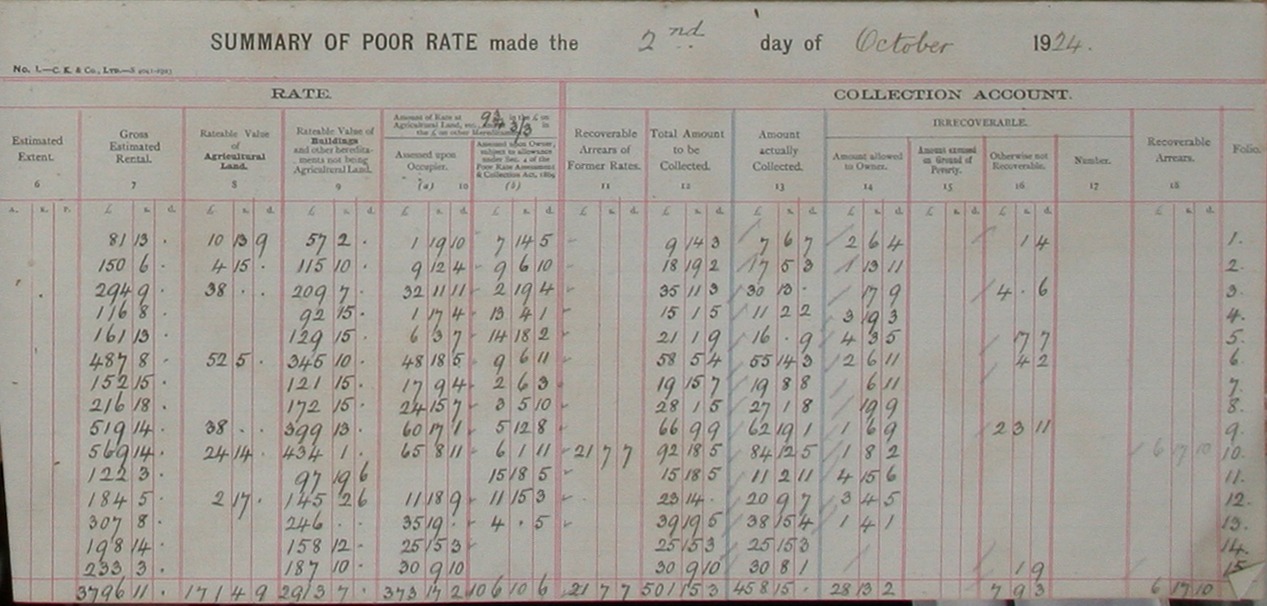 SUMMARY OF POOR RATE made the 2nd day of October 1924.
No. 1.—C. K. & Co., Ltd.—S
RATE. COLLECTION ACCOUNT.
Estimated Extent. 6
Gross Estimated Rental. 7
Rateable Value of Agricultural Land. 8
Rateable Value of Buildings and other heredita-ments not being Agricultural Land. 9
Amount of Rate at in the £ on Agricultural Land, 3/3 in the £ on other Hereditaments
Assessed upon Occupier. (a) 10
Assessed upon Owner, subject to allowance under Sec. 4 of the Poor Rate Assessment & Collection Act, 1869 (b)
Recoverable Arrears of Former Rates. 11
Total Amount to be Collected. 12
Amount actually Collected. 13
IRRECOVERABLE.
Amount allowed to Owner. 14
Amount excused on Ground of Poverty. 15
Otherwise not Recoverable. 16
Number. 17
Recoverable Arrears. 18
Folio.
A. R. P. £ s. d. £ s. d. £ s. d. £ s. d. £ s. d. £ s. d. £ s. d. £ s. d. £ s. d. £ s. d. £ s. d. £ s. d.
81 13 . 10 13 9 57 2 . 1 19 10 7 14 5 9 14 3 7 6 7 2 6 4 1 4 1.
150 6 . 4 15 . 115 10 . 9 12 4 9 6 10 18 19 2 17 5 3 1 13 11 2.
294 9 . 38 . . 209 7 . 32 11 11 2 19 4 35 11 3 30 13 . 17 9 4 . 6 3.
116 8 . 92 15 . 1 17 4 13 4 1 15 1 5 11 2 2 3 19 3 4.
161 13 . 129 15 . 6 3 7 14 18 2 21 1 9 16 . 9 4 3 5 17 7 5.
487 8 . 52 5 . 345 10 . 48 18 5 9 6 11 58 5 4 55 14 3 2 6 11 4 2 6.
152 15 . 121 15 . 17 9 4 2 6 3 19 15 7 19 8 8 6 11 7.
216 18 . 172 15 . 24 15 7 3 5 10 28 1 5 27 1 8 19 9 8.
519 14 . 38 . . 399 13 . 60 17 1 5 12 8 66 9 9 62 19 1 1 6 9 2 3 11 9.
569 14 . 24 14 . 434 1 . 65 8 11 6 1 11 21 7 7 92 18 5 84 12 5 1 8 2 6 17 10 10.
122 3 . 97 19 6 15 18 5 15 18 5 11 2 11 4 15 6 11.
184 5 . 2 17 . 145 2 6 11 18 9 11 15 3 23 14 . 20 9 7 3 4 5 12.
307 8 . 246 . . 35 19 . 4 . 5 39 19 5 38 15 4 1 4 1 13.
198 14 . 158 12 . 25 15 3 25 15 3 25 15 3 14.
233 3 . 187 10 . 30 9 10 30 9 10 30 8 1 1 9 15
3796 11 . 171 4 9 2913 7 . 373 17 2 106 10 6 21 7 7 501 15 3 458 15 . 28 13 2 7 9 3 6 17 10